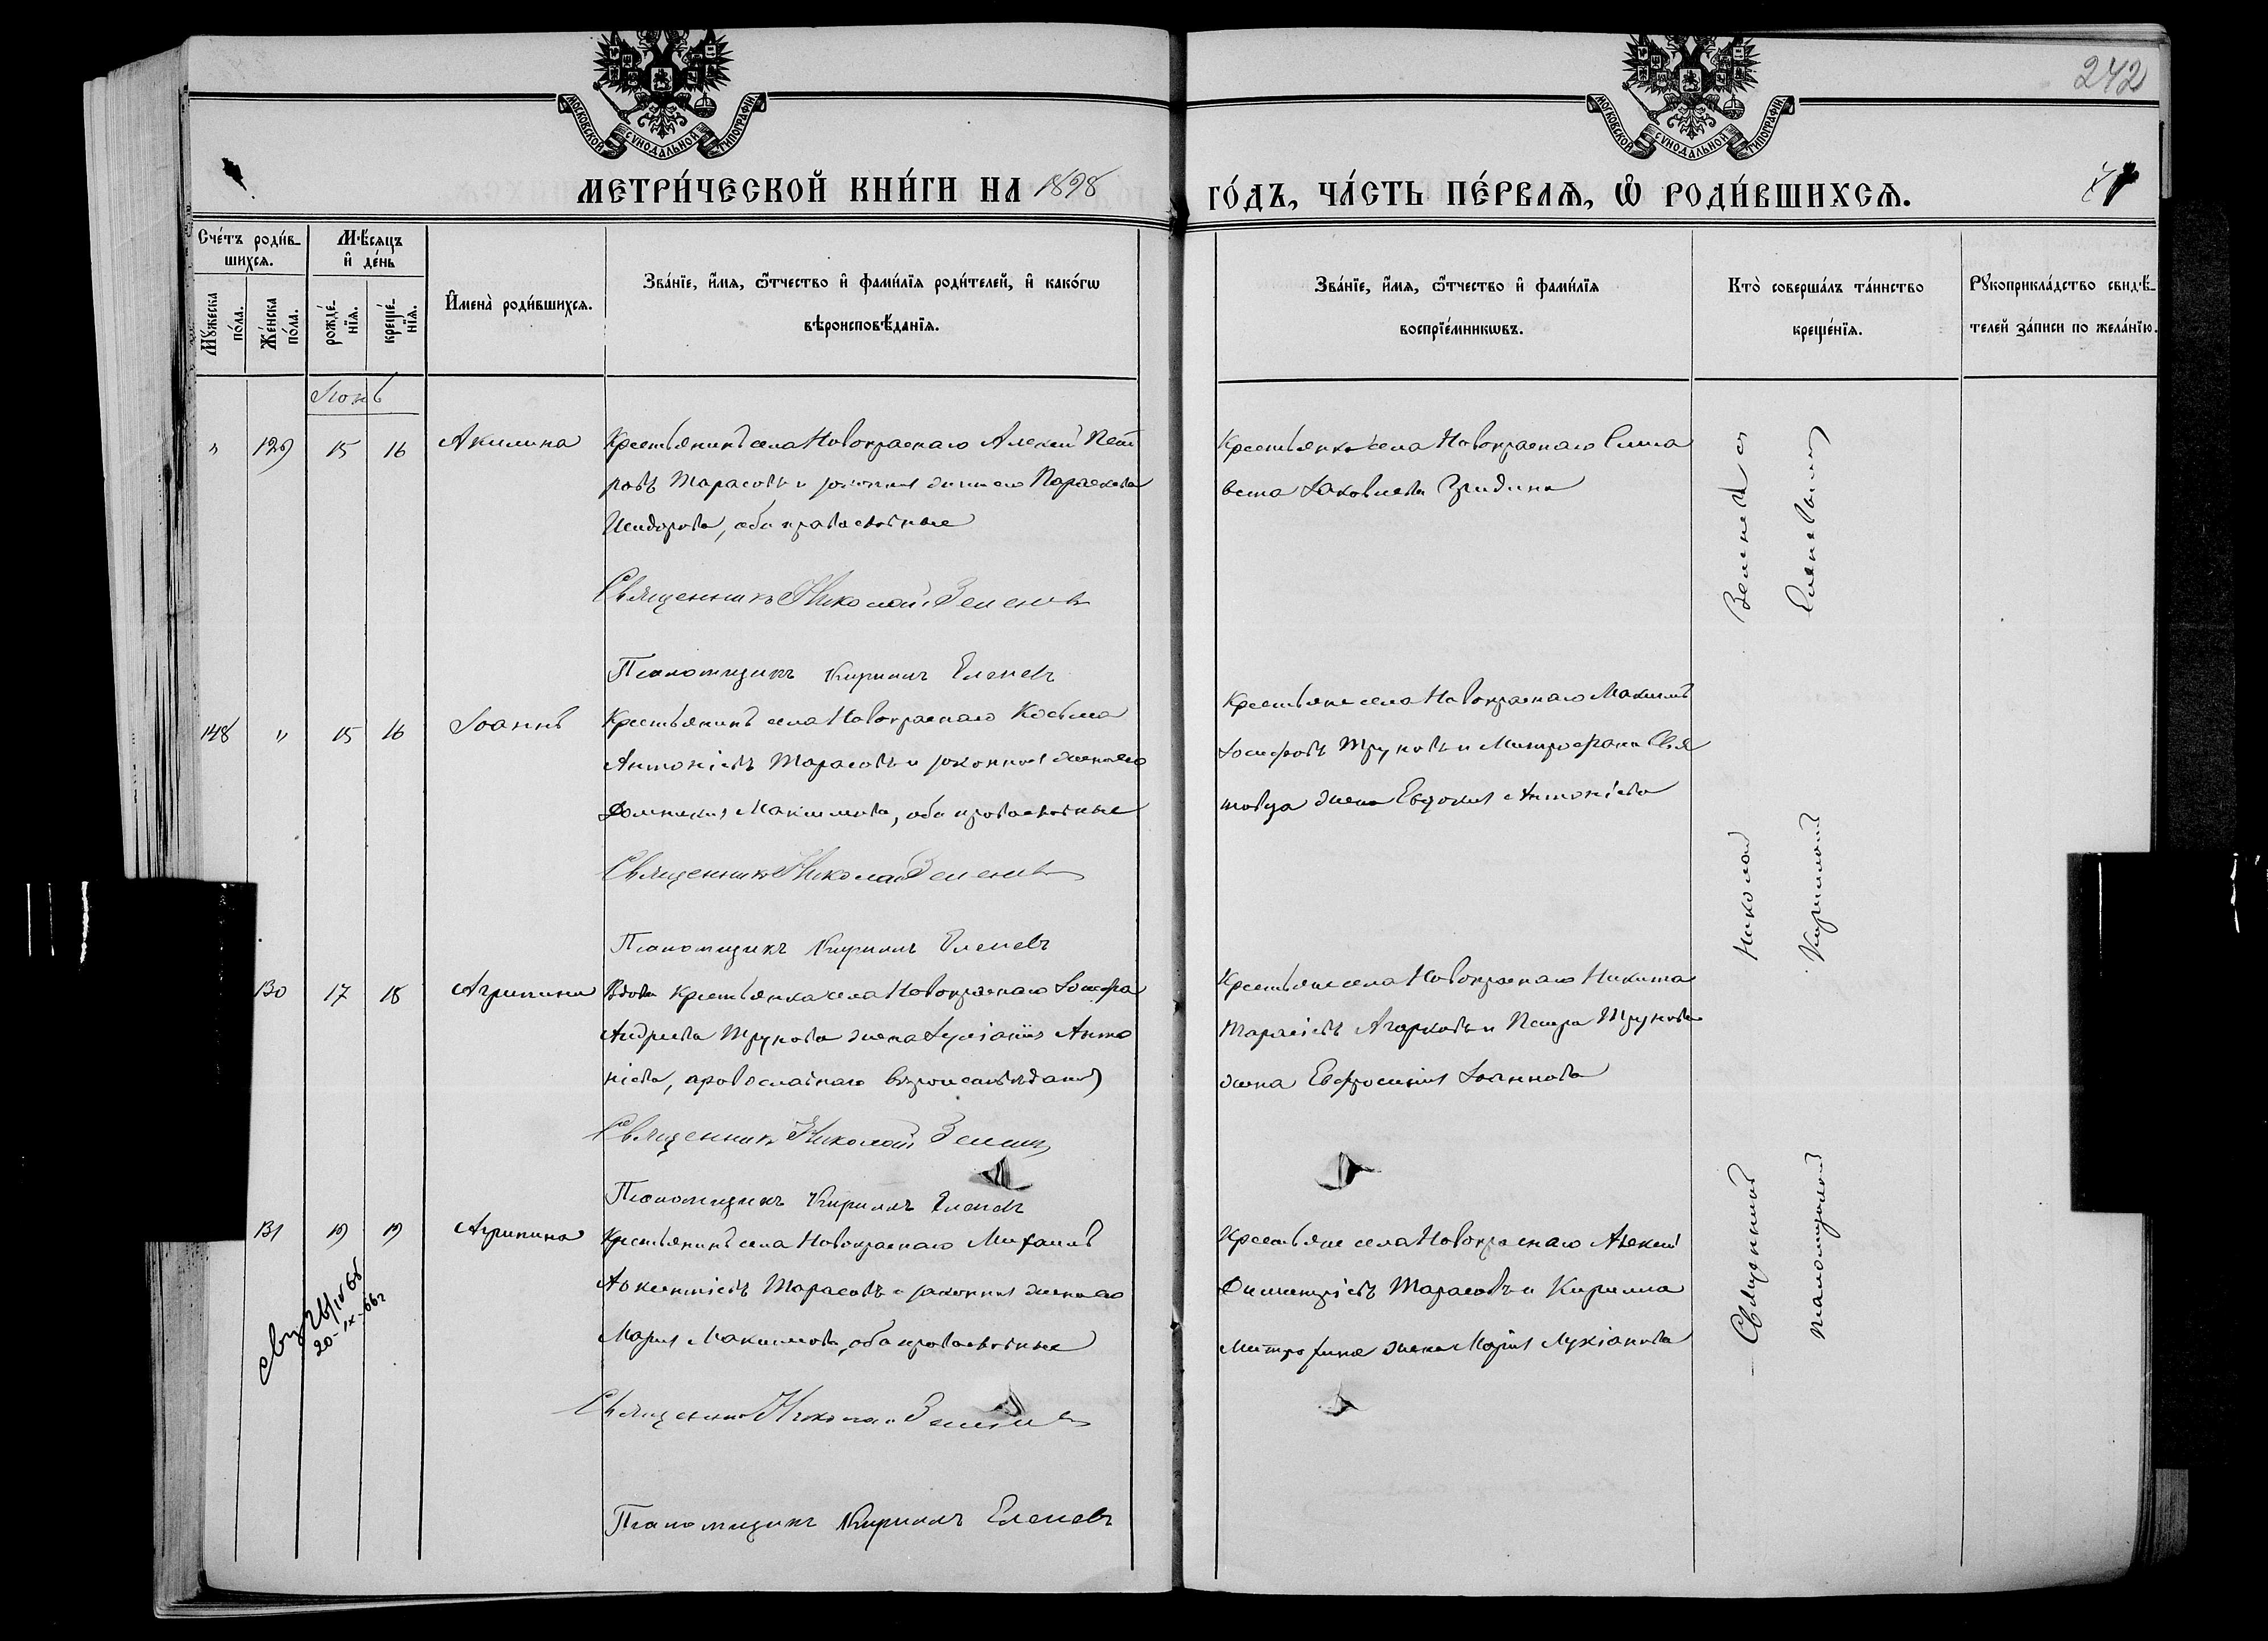 242
МОСКОВСКОЙ СѴНОДАЛЬНОЙ ТИПОГРАФІИ.
МОСКОВСКОЙ СѴНОДАЛЬНОЙ ТИПОГРАФІИ.
МЕТРИ́ЧЕСКОЙ КНИ́ГИ НА 1898
ГО́ДЪ, ЧА́СТЬ ПЕ́РВАЯ, Ѡ҆ РОДИ́ВШИХСЯ.
Сче́тъ роди́в-
шихся.
Мѣ́сяцъ
и҆ де́нь
Мꙋжеска
по́ла.
Же́нска
по́ла.
рожде́-
нїя.
креще́-
нїя.
И҆мена̀ роди́вшихся.
Зва́нїе, и҆́мя, ѻ҆́тчество и҆ фами́лїя роди́телей, и҆ како́гѡ
вѣроисповѣ́данїя.
Зва́нїе, и҆́мя, ѻ҆́тчество и҆ фами́лїя
воспрїе́мникѡвъ.
Кто̀ соверша́лъ та́инство
креще́нїя.
Рꙋкоприкла́дство свидѣ́-
телей за́писи по жела́нїю.
Іюнь
" 129 15 16 Акилина Крестьянинъ села Новокраснаго Алексѣй Пет
ровъ Тарасовъ и законная жена его Параскева
Исидорова, оба православные
Священникъ Николай Зеленевъ
Псаломщикъ Кириллъ Еленевъ
Крестьянка села Новокраснаго Елиса
вета Іаковлева
148 " 15 16 Іоаннъ Крестьянинъ села Новокраснаго Косьма
Антоніевъ Тарасовъ и законная жена его
Домникия Максимова, оба православные
Священникъ Николай Зеленевъ
Псаломщикъ Кириллъ Еленевъ
Крестьяне села Новокраснаго Максимъ
Іосифовъ Труновъ и Митрофана
жена Евдокия Антоніева
130 17 18 Агрипина Вдова крестьянка села Новокраснаго Іосифа
Андреева Трунова жена Іуліанія Анто
ніева, православнаго вѣроисповѣданія
Священникъ Николай Зеленевъ
Псаломщикъ Кириллъ Еленевъ
Крестьяне села Новокраснаго Никита
Тарасіевъ Агарковъ и Петра Трунова
жена Евфросинія Іоаннова
131 19 19 Агрипина Крестьянинъ села Новокраснаго Михаилъ
Авксентіевъ Тарасовъ и законная жена его
Мария Максимова, оба православные
Священникъ Николай Зеленевъ
Псаломщикъ Кириллъ Еленевъ
Крестьяне села Новокраснаго Алексѣй
Димитріевъ Тарасовъ и Кирилла
жена Мария Лукіанова
20-IX-66г
Священникъ Николай Зеленевъ
псаломщикъ Кириллъ Еленевъ